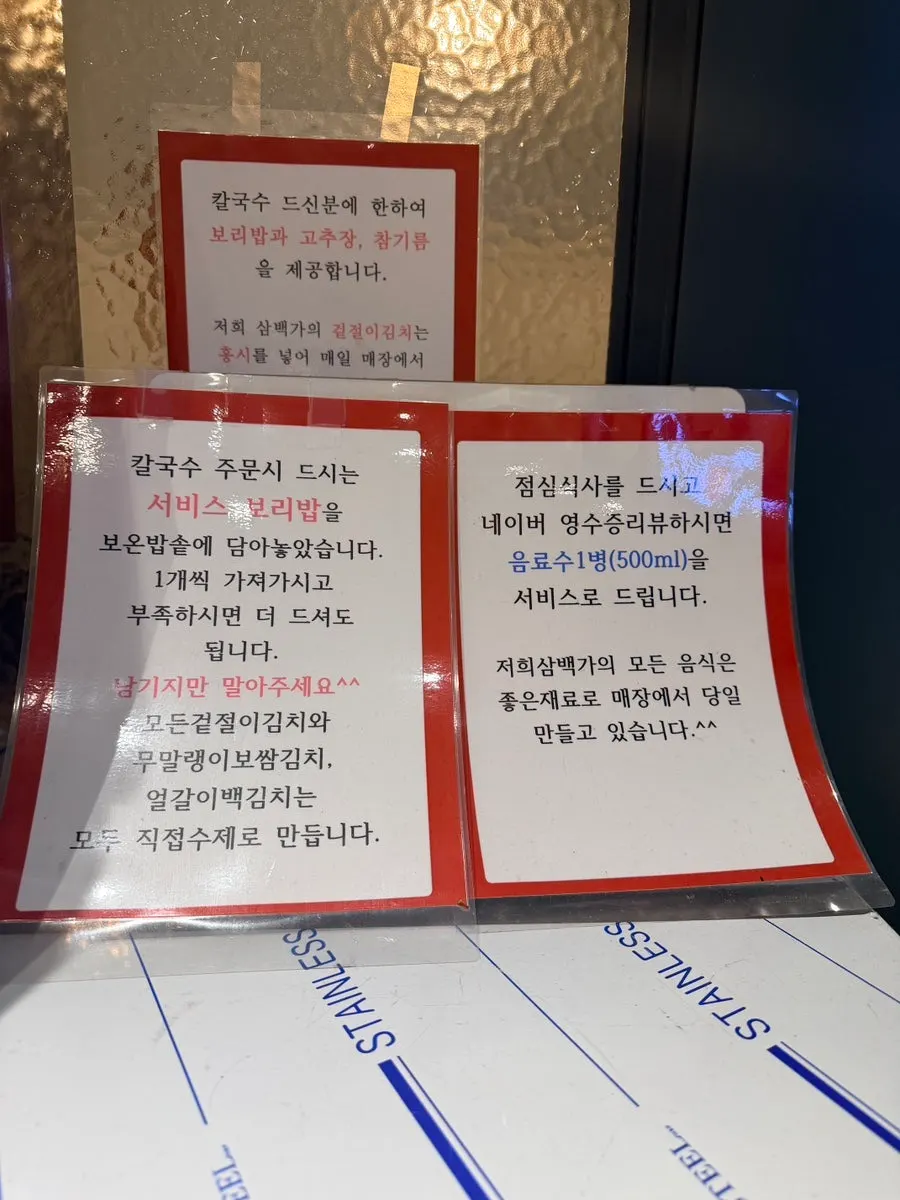 칼국수 드신분에 한하여
보리밥과 고추장, 참기름
을 제공합니다.
저희 삼백가의 겉절이김치는
홍시를 넣어 매일 매장에서
칼국수 주문시 드시는
서비스 보리밥을
보온밥솥에 담아놓았습니다.
1개씩 가져가시고
부족하시면 더 드셔도
됩니다.
남기지만 말아주세요^^
모든겉절이김치와
무말랭이보쌈김치,
얼갈이백김치는
모두 직접수제로 만듭니다.
점심식사를 드시고
네이버 영수증리뷰하시면
음료수1병(500ml)을
서비스로 드립니다.
저희삼백가의 모든 음식은
좋은재료로 매장에서 당일
만들고 있습니다.^^
STAINLESS
STAINLESS
TEEL